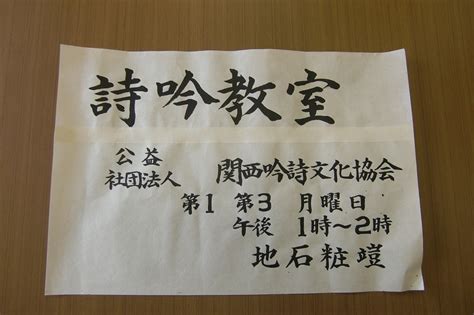 詩吟教室
公益
社団法人 関西吟詩文化協会
第1 第3 月曜日
午後 1時〜2時
地石粧暟